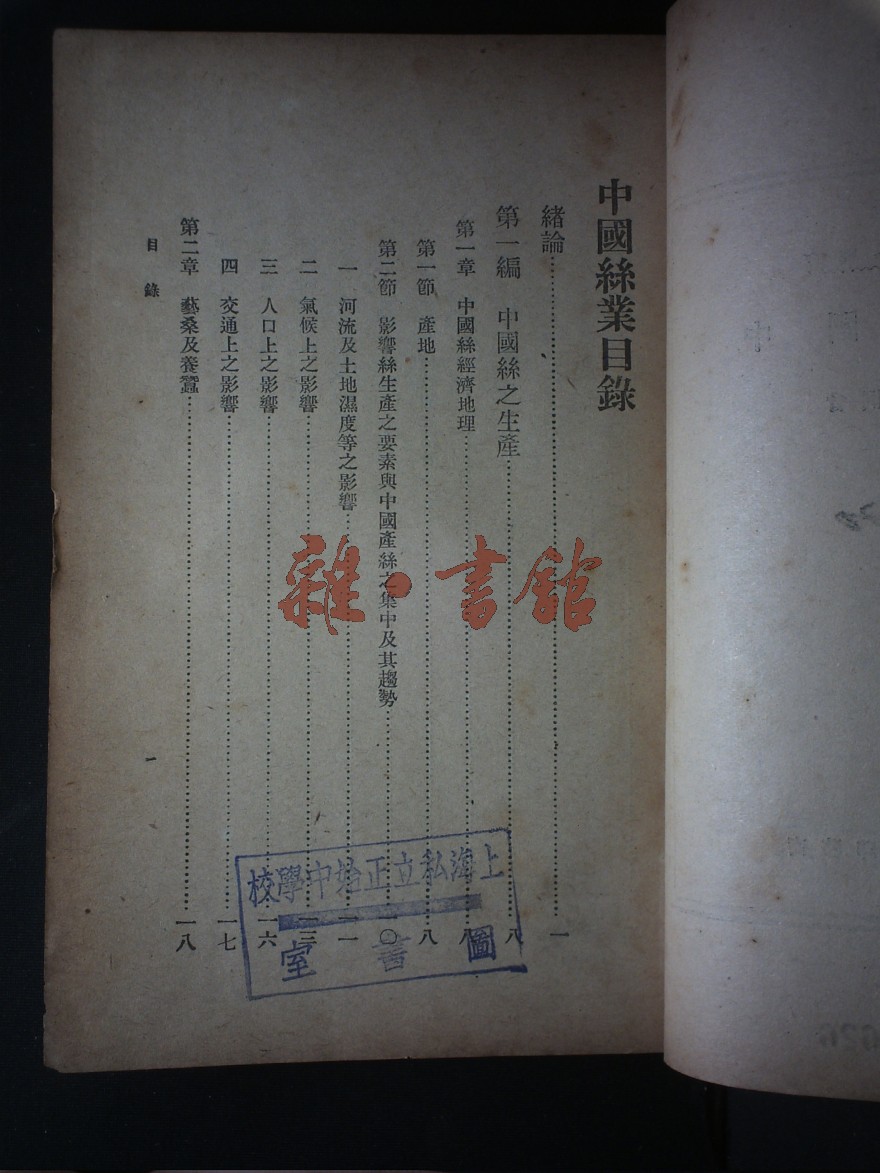 中國絲業目錄
緒論……一
第一編 中國絲之生產……八
第一章 中國絲經濟地理……八
第一節 產地……八
第二節 影響絲生產之要素與中國產絲之集中及其趨勢……一〇
一 河流及土地濕度等之影響……一一
二 氣候上之影響……一三
三 人口上之影響……一六
四 交通上之影響……一七
第二章 藝桑及養蠶……一八
目錄
一
上海私立正始中學校
圖書室
雜·書館